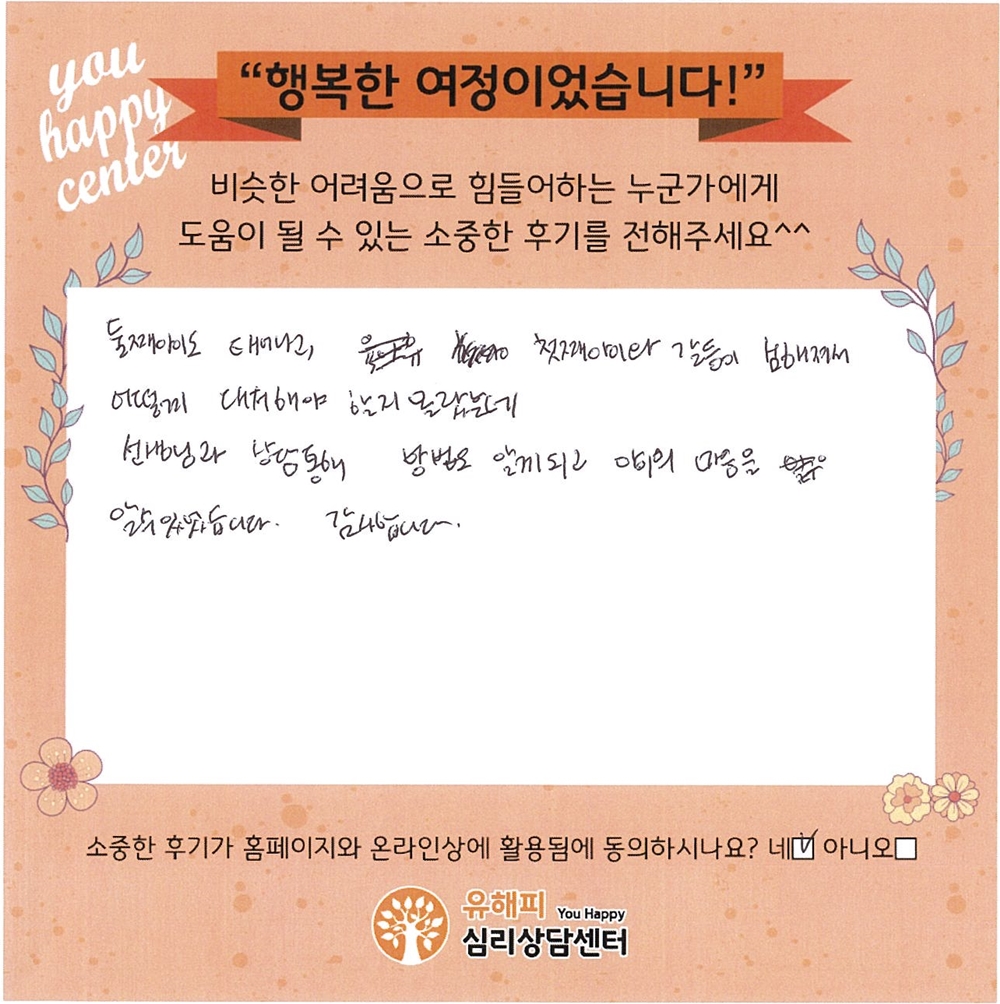 you
happy
center
“행복한 여정이었습니다!”
비슷한 어려움으로 힘들어하는 누군가에게
도움이 될 수 있는 소중한 후기를 전해주세요^^
둘째아이도 태어나고, 첫째아이랑 갈등이 심해져서
어떻게 대처해야 할지 몰랐는데
선생님과 상담통해 방법도 알게되고 아이의 마음을
알수있었습니다. 감사합니다.
소중한 후기가 홈페이지와 온라인상에 활용됨에 동의하시나요? 네☑ 아니오☐
유해피 You Happy
심리상담센터